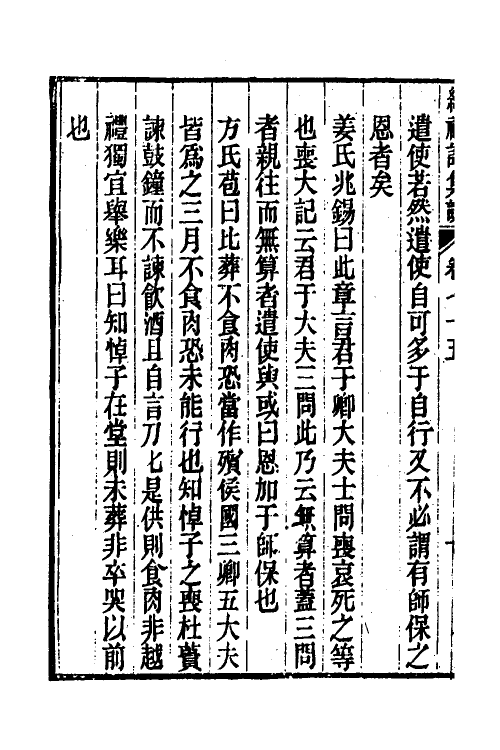 續禮記集說 卷七十五
遣使若然遣使自可多于自行又不必謂有師保之
恩者矣
姜氏兆錫曰此章言君于卿大夫士問喪哀死之等
也喪大記云君于大夫三問此乃云無算者蓋三問
者親往而無算者遣使與或曰恩加于師保也
方氏苞曰比葬不食肉恐當作殯侯國三卿五大夫
皆爲之三月不食肉恐未能行也知悼子之喪杜蕢
諫鼓鐘而不諫飲酒且自言刀匕是供則食肉非越
禮獨宜舉樂耳曰知悼子在堂則未葬非卒哭以前
也